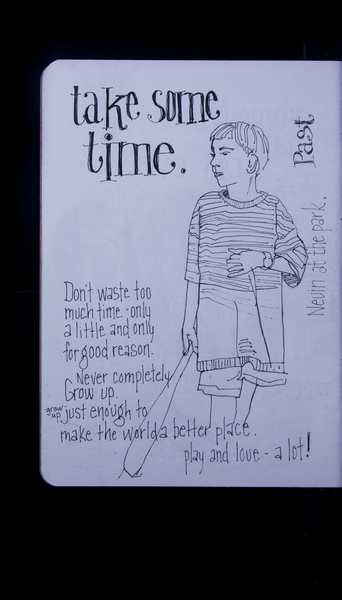 take some
time.
Past
Nevin at the park.
Don't waste too
much time - only
a little and only
for good reason.
Never completely
Grow up.
grow up just enough to
make the world a better place.
play and love - a lot!